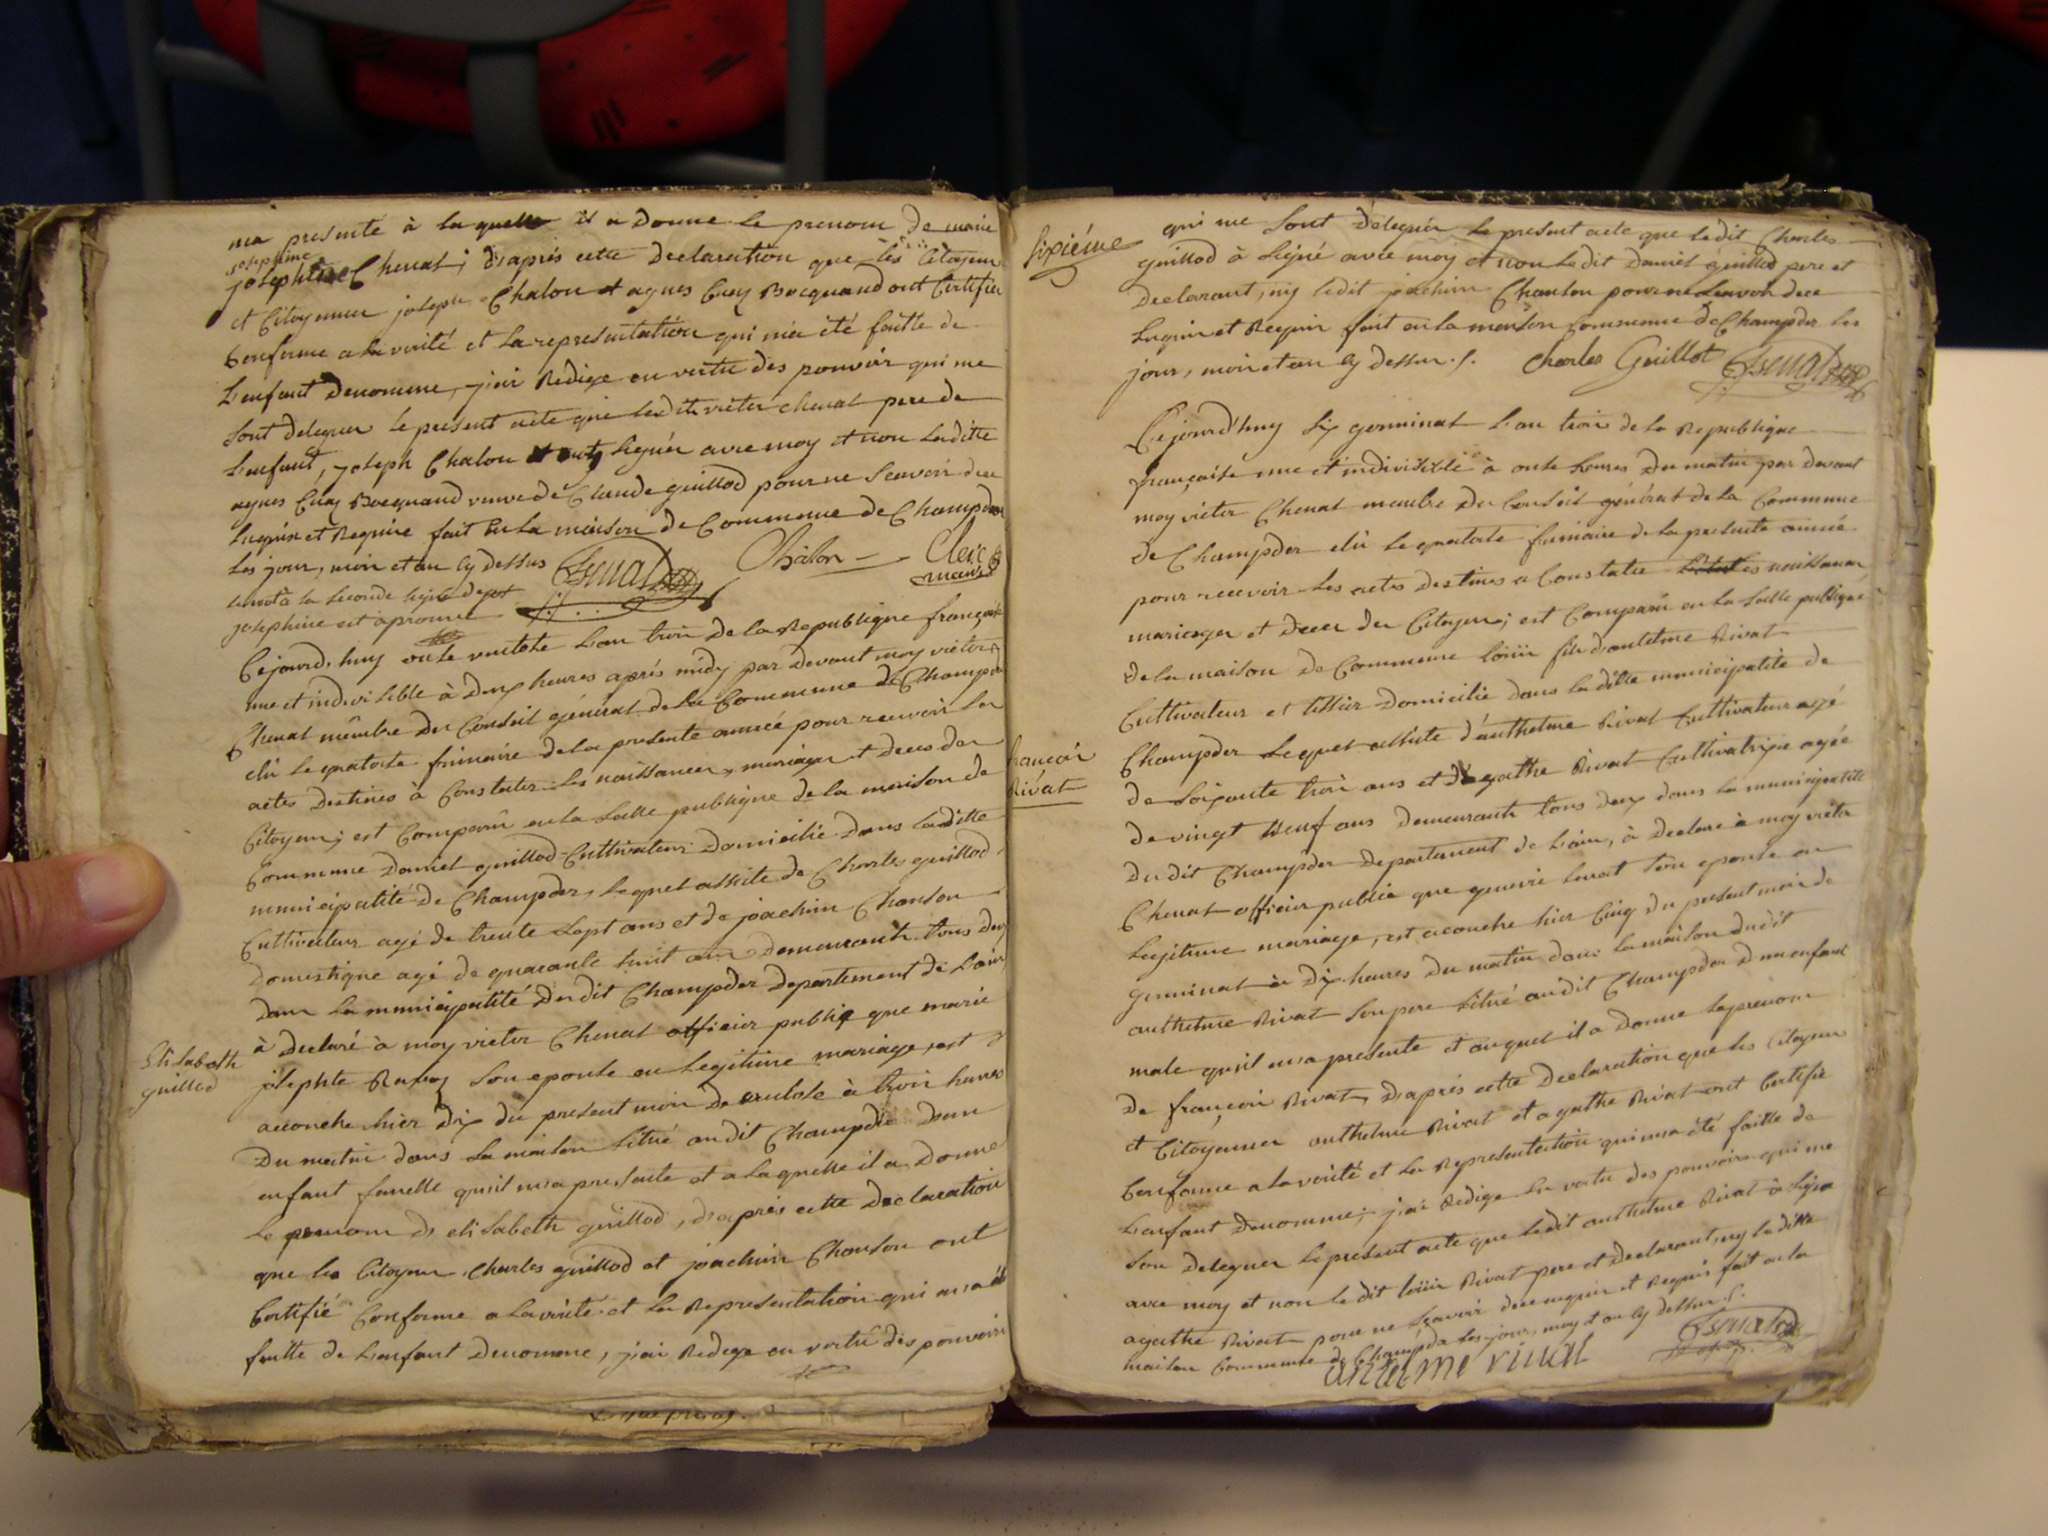 ma presenté à laquelle il a donne le prenom de marie
josephine
josephte Chenat; d'après cette declaration que les Citoyens
et Citoyenne joseph Chalon et agnes Bocquand ont Certifier
Conforme a la verité et la representation qui m'a été faitte de
L'enfant denomme, j'ai Redige en vertu des pouvoir qui me
sont deleguer le present acte que ledit victer chenat pere de
L'enfant, joseph Chalon signér avec moy et non laditte
agnes Bocquand veuve de Claude guillod pour ne scavoir de ce
enquir et Require fait en la maison de Commune de Champdor
Les jour, moi et an cy dessus Chenat Chalon Clerc
maire
la seconde ligne
josephine est aprouve
Cejourd'huy onze ventose L'an trois de la Republique françoise
une et indivisible à deux heures après midy par devant moy victer
Chenat membre du Conseil général de la Commune de Champdor
élû le quatorze frimaire de la presente année pour recevoir les
actes destinés à Constater les naissances, mariages et deces des
Citoyens; est Comparû en la salle publique de la maison de
Commune Daniel guillod Cultivateur domicilié dans laditte
municipalité de Champdor, lequel assisté de Charles guillod,
Cultivateur agé de trente sept ans et de joachim Chanson
domestique agé de quarante huit ans demeurants tous deux
dans la municipalité du dit Champdor departement de L'ain,
à declaré à moy victer Chenat officier publiq que marie
Elisabeth
guillod
josephte son epouse en Legitime mariage, est
accouche hier dix du present mois de ventose à trois heures
du matin dans sa maison situé audit Champdor dun
enfant femelle qu'il m'a presente et a laquelle il a donne
le prenom de elisabeth guillod, d'après cette declaration
que les Citoyen Charles guillod et joachim Chanson ont
Certifié Conforme a la vérité et la Representation qui m'a été
faitte de L'enfant denomme, j'ai Redige en vertu des pouvoirs
Sixiéme
qui me sont deleguér le present acte que ledit Charles
guillod à signé avec moy et non ledit Daniel guillod pere et
declarant, ny ledit joachim Chanson pour ne scavoir de ce
enquir et Requir fait en la maison Commune de Champdor les
jour, moi et an cy dessus. Charles Guillot Chenat
Cejourd'huy six germinal L'an trois de la Republique
française une et indivisible à onze heures du matin par devant
moy victer Chenat membre du Conseil général de la Commune
de Champdor élû le quatorze frimaire de la presente année
pour recevoir les actes destines a Constater les naissances
mariages et deces des Citoyens; est Comparû en la salle publique
de la maison de Commune loüis fils d'antelme Rivat
Cultivateur et tissier domicilié dans la ditte municipalité de
Champdor lequel assisté d'anthelme Rivat Cultivateur agé
françois
Rivat
de soixante trois ans et d'agathe Rivat Cultivatrixe agée
de vingt neuf ans demeurants tous deux dans la municipalité
du dit Champdor departement de L'ain, à declaré à moy victer
Chenat officier public que son epouse en
Legitime mariage, est accouche hier Cinq du present mois de
germinal à dix heures du matin dans la maison dudit
anthelme Rivat son pere situé audit Champdor d'un enfant
male qu'il m'a presente et auquel il a donne le prenom
de françois Rivat, d'après cette declaration que les Citoyen
et Citoyenne anthelme Rivat et agathe Rivat ont Certifié
Conforme a la vérité et la Representation qui m'a été faitte de
L'enfant denomme, j'ai Redige en vertu des pouvoirs qui me
son deleguer le present acte que ledit anthelme Rivat à signé
avec moy et non le dit loüis Rivat pere et declarant, ny laditte
agathe Rivat pour ne scavoir de ce enquir et Requis fait en la
maison Commune de Champdor les jour, moy et an cy dessus.
antelme rivat Chenat